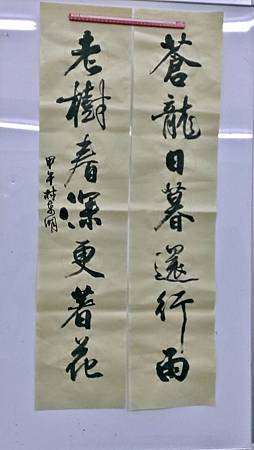 蒼龍日暮還行雨
老樹春深更著花
甲午林東明